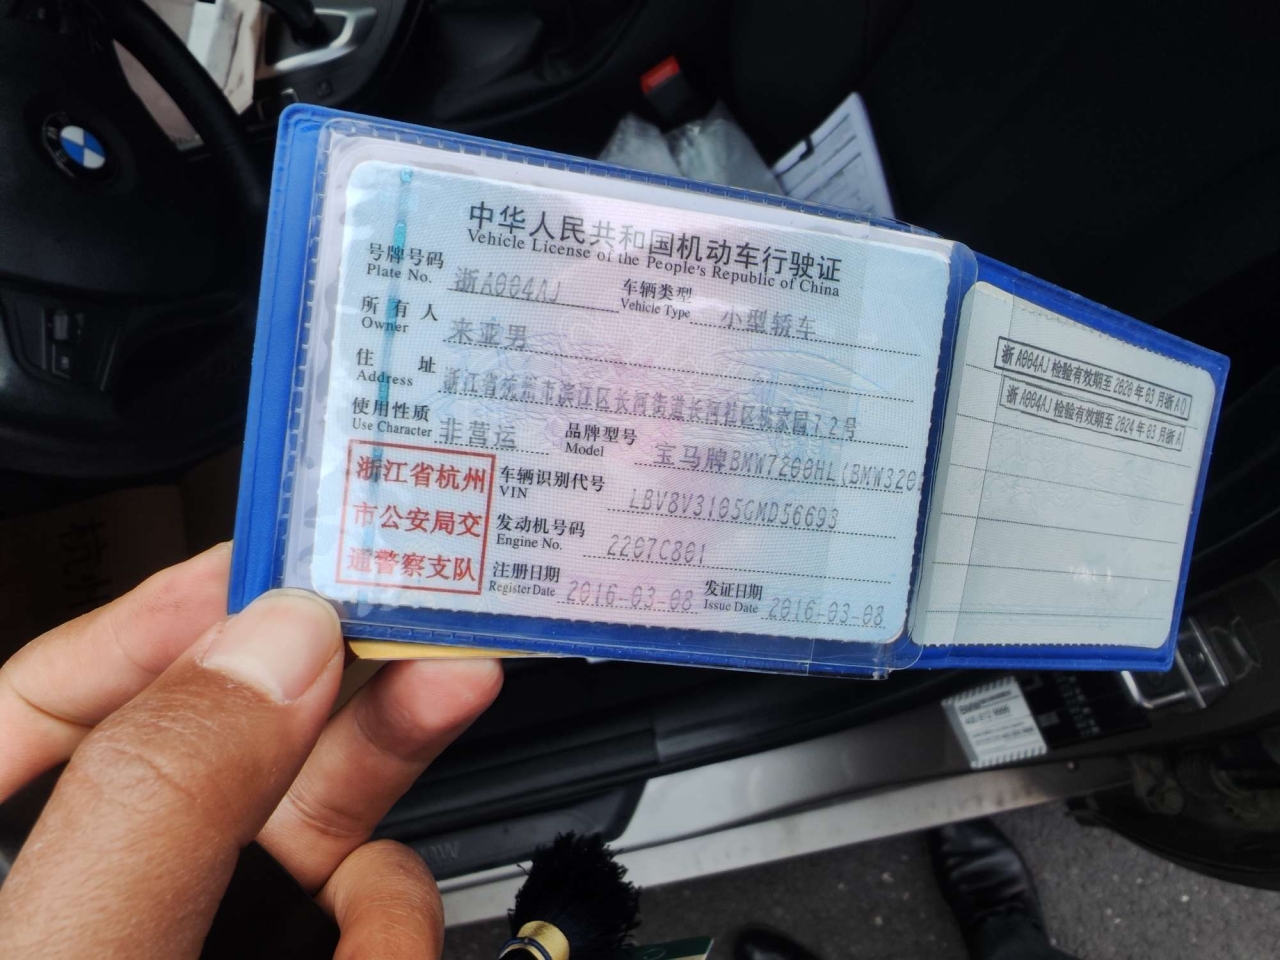 中华人民共和国机动车行驶证
Vehicle License of the People's Republic of China
号牌号码 浙A004AJ 车辆类型 小型轿车
Plate No. Vehicle Type
所有人 来亚男
Owner
住址 浙江省杭州市滨江区长河街道长河社区姚家园72号
Address
使用性质 非营运 品牌型号 宝马牌BMW7200HL(BMW320
Use Character Model
浙江省杭州
市公安局交
通警察支队
车辆识别代号 LBV8V3105GMD56693
VIN
发动机号码 2207C801
Engine No.
注册日期 2016-03-08 发证日期 2016-03-08
Register Date Issue Date
浙A004AJ检验有效期至2020年03月浙A
浙A004AJ检验有效期至2024年03月浙A